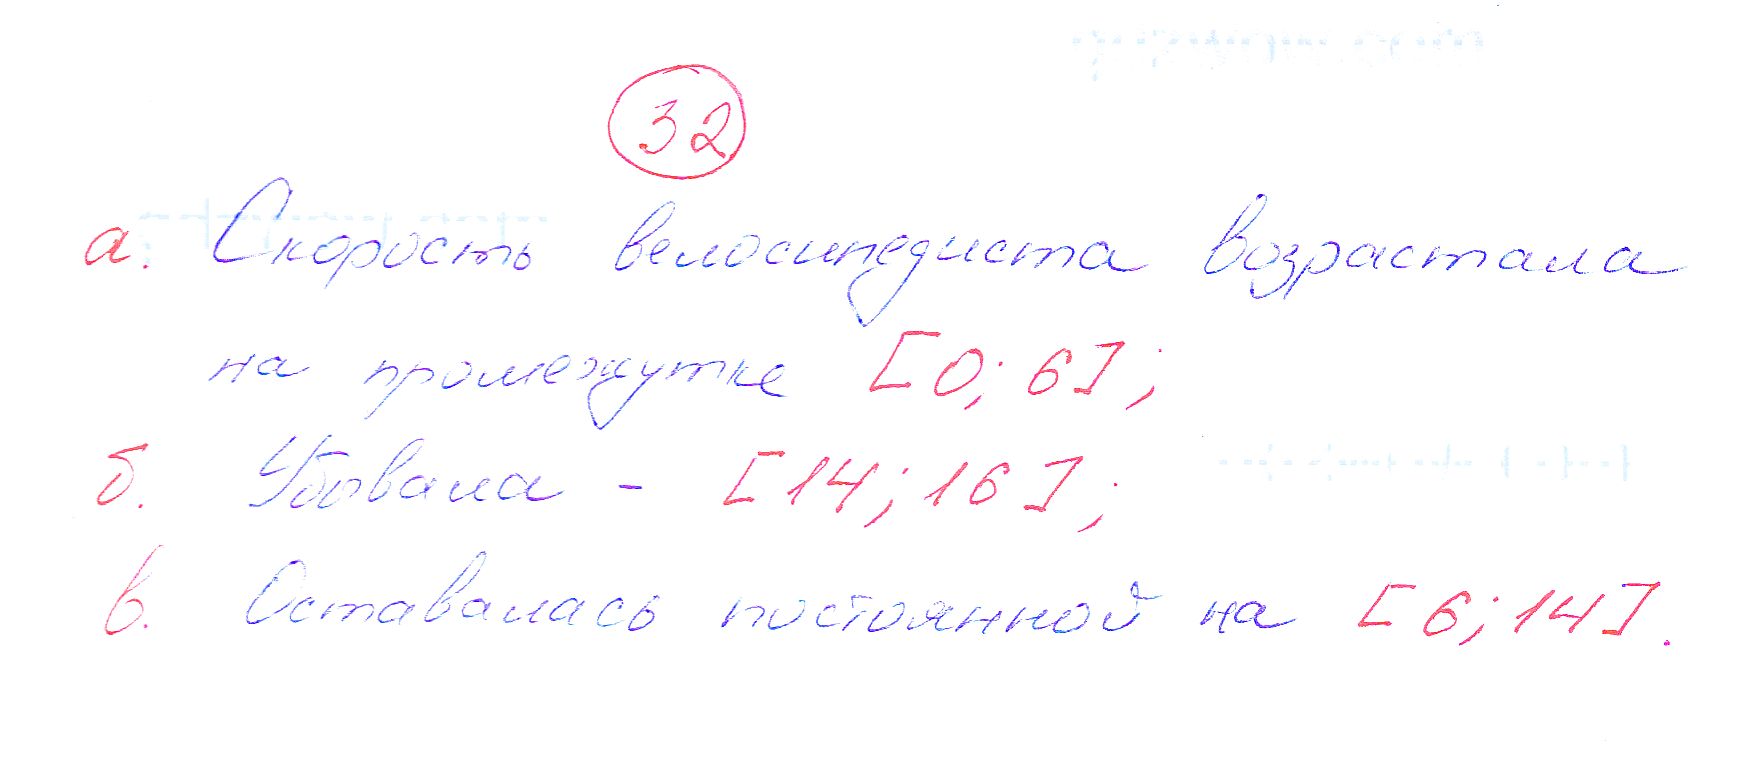 32
а. Скорость велосипедиста возрастала
на промежутке [0; 6];
б. Убывала - [14; 16];
в. Оставалась постоянной на [6; 14].